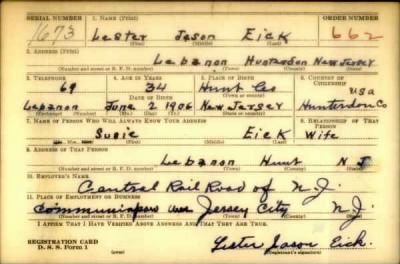 SERIAL NUMBER 1. NAME (Print) ORDER NUMBER
1673 Lester Jason Eick 662
(First) (Middle) (Last)
2. ADDRESS (Print)
Lebanon Hunterdon New Jersey
(Number and street or R. F. D. number) (Town) (County) (State)
3. TELEPHONE 4. AGE IN YEARS 5. PLACE OF BIRTH 6. COUNTRY OF CITIZENSHIP
69 34 Hunt Co USA
DATE OF BIRTH
Lebanon June 2 1906 New Jersey Hunterdon Co
(Exchange) (Number) (Mo.) (Day) (Yr.) (State or country)
7. NAME OF PERSON WHO WILL ALWAYS KNOW YOUR ADDRESS 8. RELATIONSHIP OF THAT PERSON
Susie Eick Wife
(First) (Middle) (Last)
9. ADDRESS OF THAT PERSON
Lebanon Hunt N J
(Number and street or R. F. D. number) (Town) (County) (State)
10. EMPLOYER'S NAME
Central Rail Road of N.J.
11. PLACE OF EMPLOYMENT OR BUSINESS
Communipaw Ave Jersey City N.J.
(Number and street or R. F. D. number) (Town) (County) (State)
I AFFIRM THAT I HAVE VERIFIED ABOVE ANSWERS AND THAT THEY ARE TRUE.
REGISTRATION CARD
D. S. S. Form 1
Lester Jason Eick.
(over) (Registrant's signature)